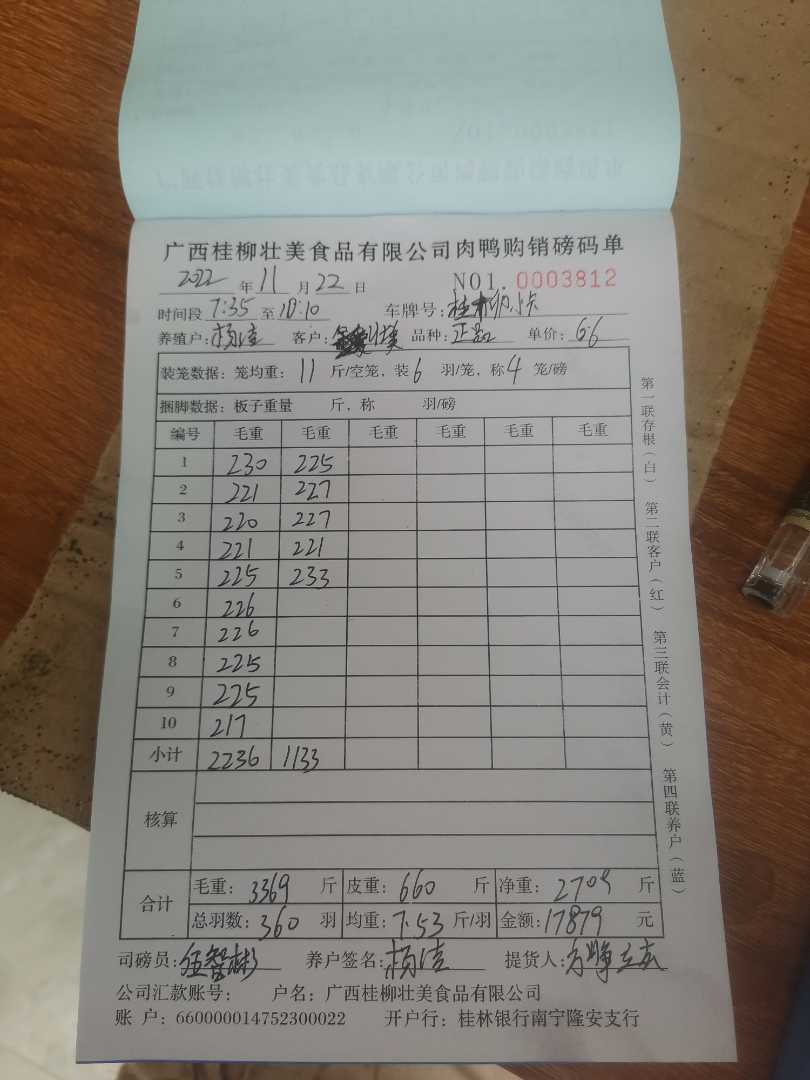 广西桂柳壮美食品有限公司肉鸭购销磅码单
2022 年 11 月 22 日 NO1. 0003812
时间段 7:35 至 10:10 车牌号: 桂
养殖户: 杨 客户: 品种: 正 单价: 6.6
装笼数据: 笼均重: 11 斤/空笼, 装 6 羽/笼, 称 4 笼/磅
捆脚数据: 板子重量 斤, 称 羽/磅
编号 毛重 毛重 毛重 毛重 毛重 毛重
1 230 225
2 221 227
3 220 227
4 221 221
5 225 233
6 226
7 226
8 225
9 225
10 217
小计 2236 1133
核算
合计 毛重: 3369 斤 皮重: 660 斤 净重: 2709 斤
总羽数: 360 羽 均重: 7.53 斤/羽 金额: 17879 元
司磅员: 伍智彬 养户签名: 杨 提货人:
公司汇款账号: 户名: 广西桂柳壮美食品有限公司
账 户: 660000014752300022 开户行: 桂林银行南宁隆安支行
第一联存根(白) 第二联客户(红) 第三联会计(黄) 第四联养户(蓝)